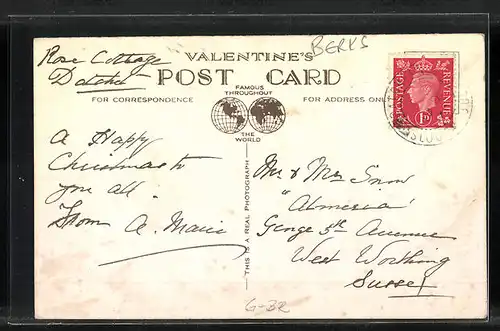 Rose Cottage
Datchet
BERKS
VALENTINE'S
POST CARD
FOR CORRESPONDENCE
FAMOUS
THROUGHOUT
THE
WORLD
FOR ADDRESS ONLY
POSTAGE
REVENUE
1D
A Happy
Christmas to
you all.
From A. Marie
THIS IS A REAL PHOTOGRAPH
Mr & Mrs Snow
"Almeria"
George 5th Avenue
West Worthing
Sussex
G-32